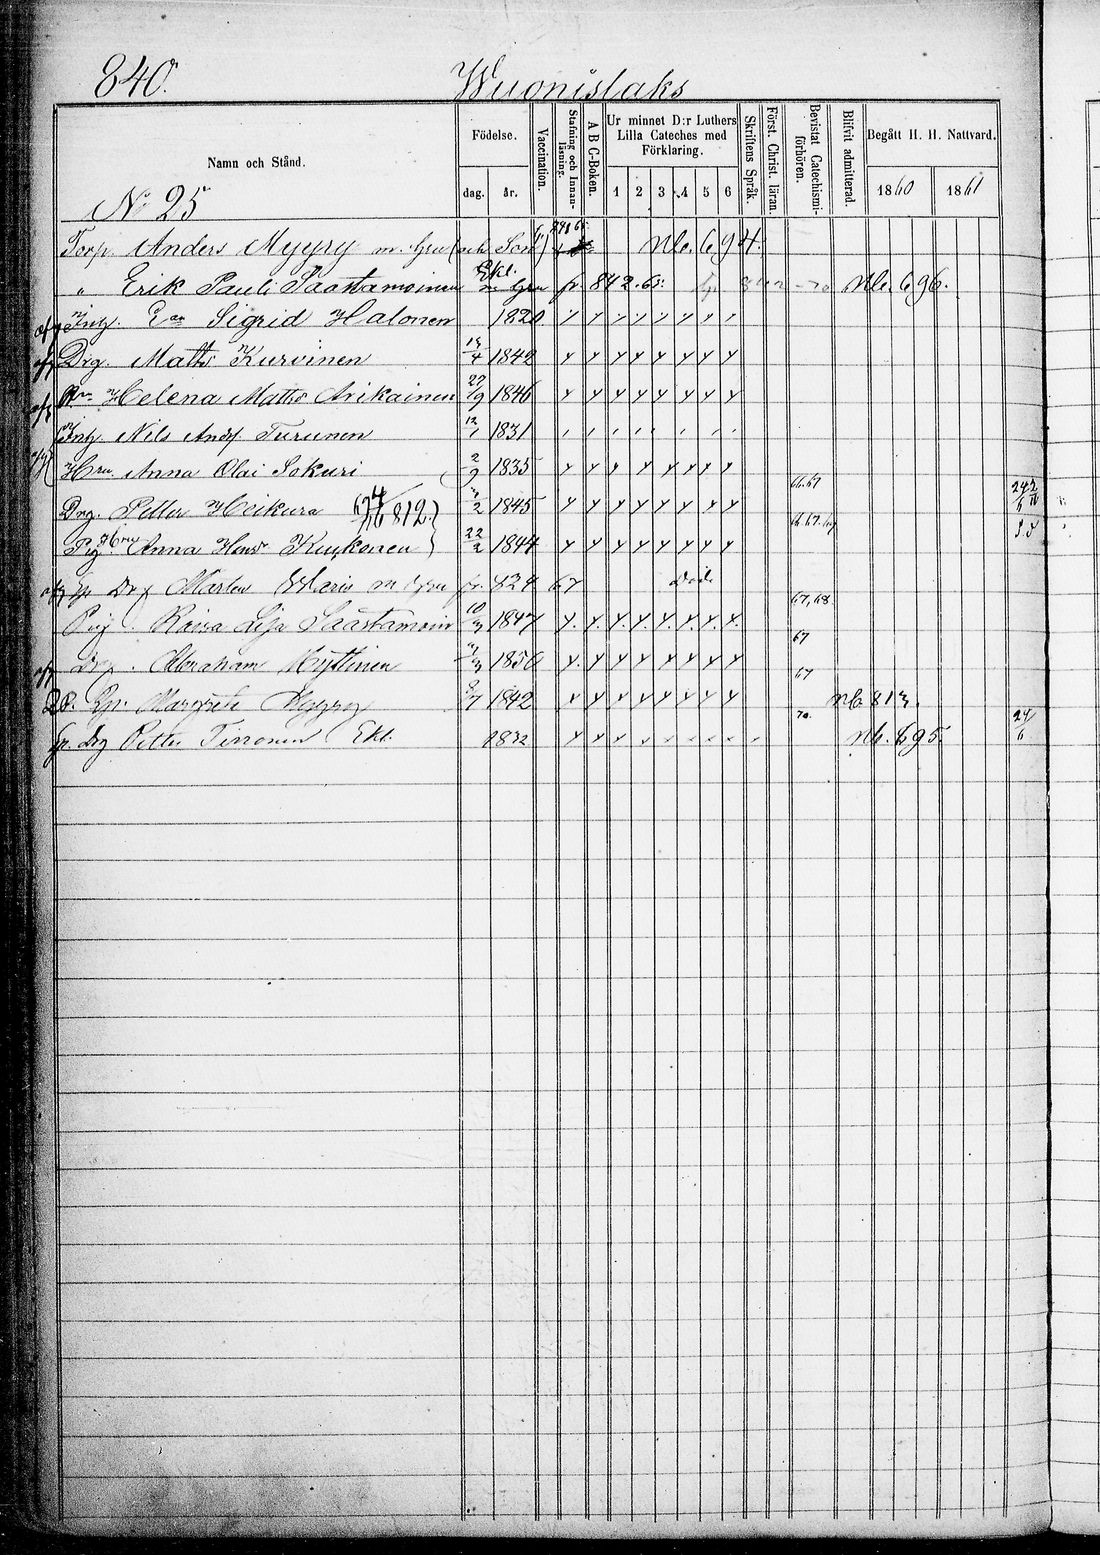 840.
Wuonislaks
Namn och Stånd.
Födelse.
dag.
år.
Vaccination.
Stafning och Innanläsning.
A B C-Boken.
Ur minnet D:r Luthers Lilla Cateches med Förklaring.
1 2 3 4 5 6
Skriftens Språk.
Först. Christ. läran.
Bevistat Catechismiförhören.
Blifvit admitterad.
Begått H. H. Nattvard.
1860 1861
No 25
Torp. Anders Myyry m. hru (och Son) Nb. 694.
" Erik Pauli Saastamoinen Ekl. m hru fr. 842. 65. Nb. 696.
Inh. Sigrid Halonen 1820
Drg. Matts Kurvinen 1842
Helena Matts Arikainen 27/9 1846
Inh. Nils Andr. Turunen 12/1 1831
Hru Anna Olai Sokuri 2/9 1835
Drg. Petter Heikura 812. 1845 66.67
Pig Hru Anna Hens Kuikonen 22/2 1844 66 67.
Drg Mårten m hru fr. 424 67 död.
Pig. Kaisa Lisa Saastamoin 10/3 1847 67,68.
Drg. Abraham Myttinen 1850 67
Margreta Myyry 1842 67 Nb 813.
Drg Petter Tirronen Ekl. 1832 70. Nb. 695. 24/6